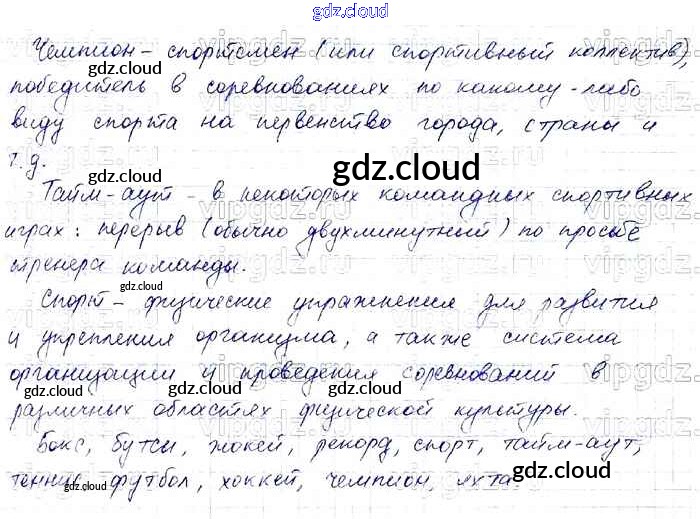 gdz.cloud
Чемпион – спортсмен (или спортивный коллектив),
gdz.cloud gdz.cloud
победитель в соревнованиях по какому-либо
виду спорта на первенство города, страны и
т.д.
gdz.cloud
Тайм-аут – в некоторых командных спортивных
играх: перерыв (обычно двухминутный) по просьбе
тренера команды.
gdz.cloud gdz.cloud
Спорт – физические упражнения для развития
и укрепления организма, а также система
организации и проведения соревнований в
gdz.cloud gdz.cloud
различных областях физической культуры.
Бокс, бутсы, жокей, рекорд, спорт, тайм-аут,
gdz.cloud
теннис, футбол, хоккей, чемпион, яхта.
gdz.cloud gdz.cloud